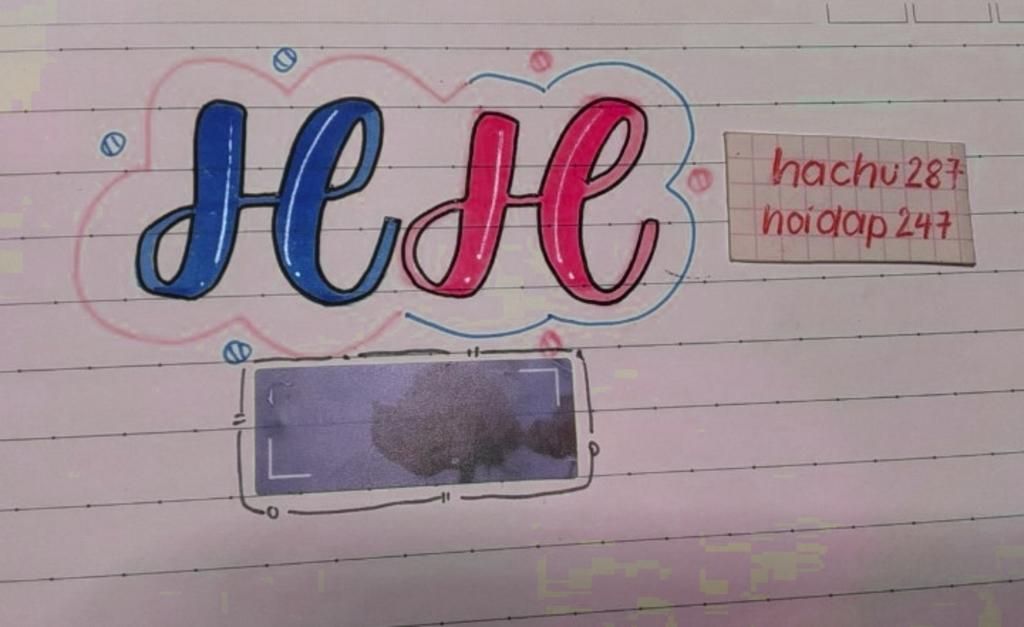 H H
hachu287
noidap247